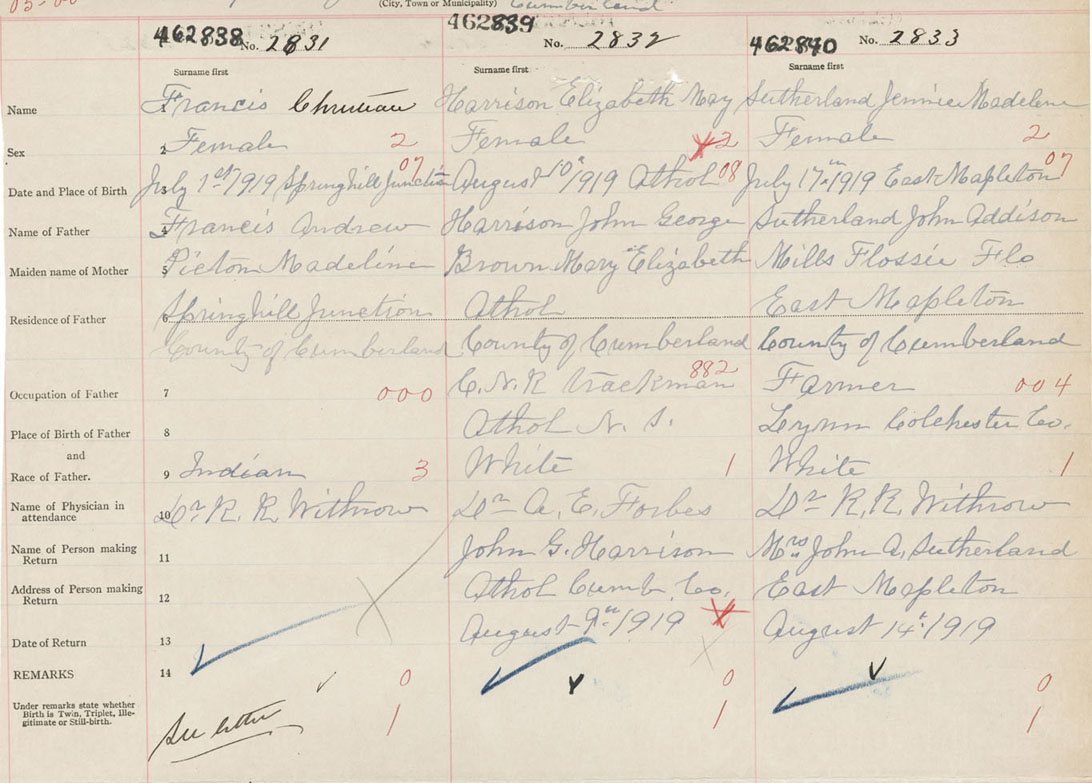 05-00
(City, Town or Municipality) Cumberland
462838 No. 2831 462839 No. 2832 462840 No. 2833
Surname first Surname first Surname first
Name 1 Francis Christian Harrison Elizabeth May Sutherland Jennie Madeline
Sex 2 Female 2 Female 2 Female 2
07 08 07
Date and Place of Birth 3 July 1st 1919 Springhill Junction August 10th 1919 Athol July 17th 1919 East Mapleton
Name of Father 4 Francis Andrew Harrison John George Sutherland John Addison
Maiden name of Mother 5 Picton Madeline Brown Mary Elizabeth Mills Flossie Flo
Residence of Father 6 Springhill Junction Athol East Mapleton
County of Cumberland County of Cumberland County of Cumberland
Occupation of Father 7 000 C.N.R Trackman 882 Farmer 004
Place of Birth of Father 8 Athol N. S. Colchester Co.
and
Race of Father. 9 Indian 3 White 1 White 1
Name of Physician in attendance 10 Dr R. R. Withrow Dr A. E. Forbes Dr R. R. Withrow
Name of Person making Return 11 John G. Harrison Mrs John A. Sutherland
Address of Person making Return 12 Athol Cumb. Co. East Mapleton
Date of Return 13 August 9th 1919 August 14th 1919
REMARKS 14 0 0 0
Under remarks state whether Birth is Twin, Triplet, Ille-
gitimate or Still-birth. See letter 1 1 1